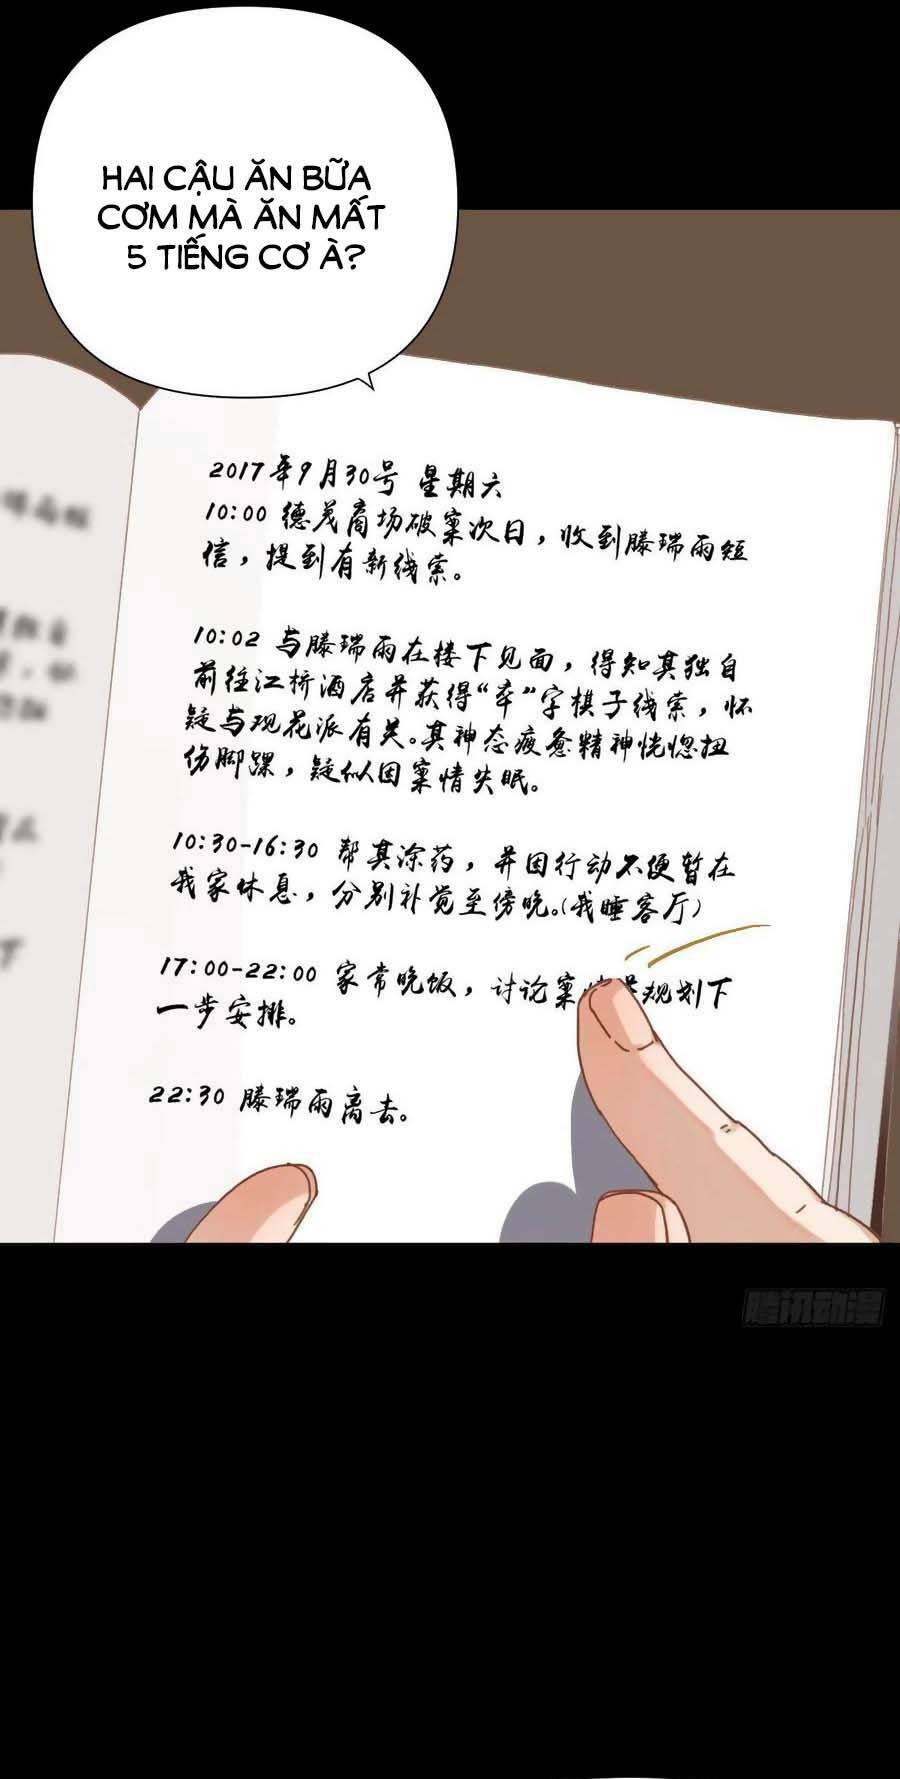 HAI CẬU ĂN BỮA
CƠM MÀ ĂN MẤT
5 TIẾNG CƠ À?
2017年9月30号 星期六
10:00 德茂商场破案次日，收到滕瑞雨短
信，提到有新线索。
10:02 与滕瑞雨在楼下见面，得知其独自
前往江桥酒店并获得“卒”字棋子线索，怀
疑与观花派有关。其神态疲惫精神恍惚扭
伤脚踝，疑似因案情失眠。
10:30-16:30 帮其涂药，并因行动不便暂在
我家休息，分别补觉至傍晚。(我睡客厅)
17:00-22:00 家常晚饭，讨论案 规划下
一步安排。
22:30 滕瑞雨离去。
腾讯动漫